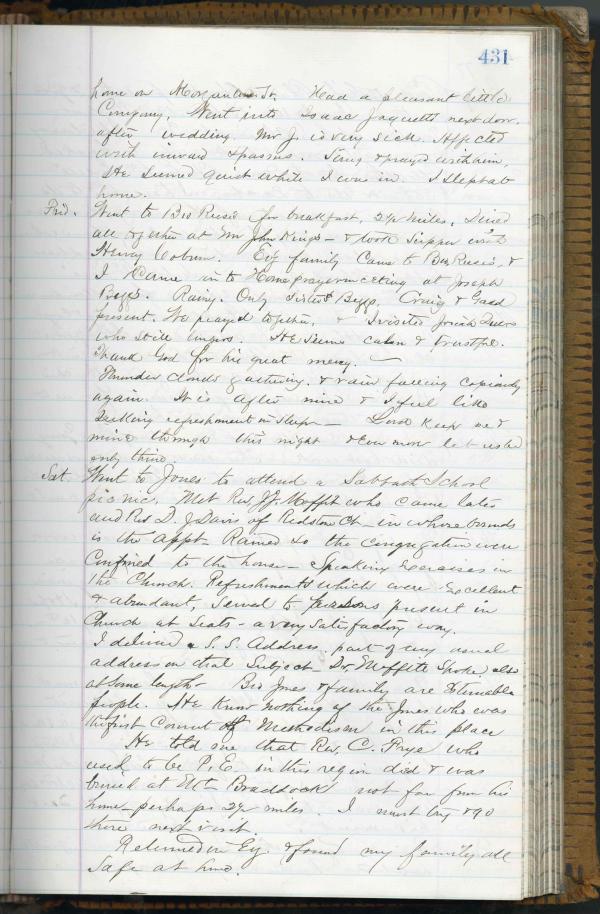 431
home on Morgantown St. Had a pleasant little
Company. Went into Isaac Jaquetts next door,
after wedding. Mr J. is very sick. Affected
with inward spasms. Sang & prayed with him.
He seemed quiet while I was in. I slept at
home.
Frid. Went to Bro Reese's for breakfast, 2½ miles, Dined
all together at Mr John King's - & took supper with
Henry Coburn. Evg family Came to Bro Reese's, &
I Came in to Home prayermeeting at Joseph
Rainy. Only Sisters Craig &
present. We prayed together, & I visited Josiah
who still lingers. He seems calm & trustful.
Thank God for his great mercy.
Thunder clouds gathering & rain falling copiously
again. It is after nine & I feel like
seeking refreshment in sleep - Lord keep me &
mine through this night & Ever more let us be
only thine.
Sat Went to Jones to attend a Sabbath School
picnic. Met Rev J.J. Moffitt who came late
and Rev D. J. Davis of Redstone Ct - in whose bounds
is the appt - Rained so the Congregation were
Confined to the house - Speaking Exercises in
the Church. Refreshments which were Excellent
& abundant, served to persons present in
Church at Seats - a very satisfactory way.
I delivered a S. S. Address, part of my usual
address on that Subject - Dr Moffitt Spoke also
at some length - Bro Jones & family are Estimable
people. He Knew nothing of the Jones who was
the first Convert of Methodism in this place
He told me that Rev. C. Frye who
used to be P. E. in this region died & was
buried at Mt Braddock not far from his
home - perhaps 2½ miles. I must try & go
there next visit.
Returned in Evg. & found my family all
Safe at home.